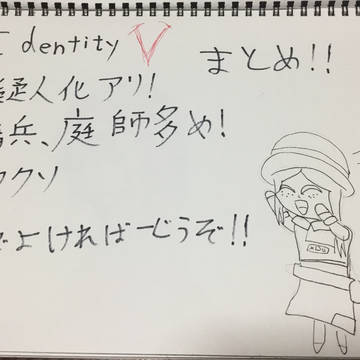 Identity V
まとめ!!
擬人化アリ!
傭兵、庭師多め!
クソ
でよければどうぞ!!